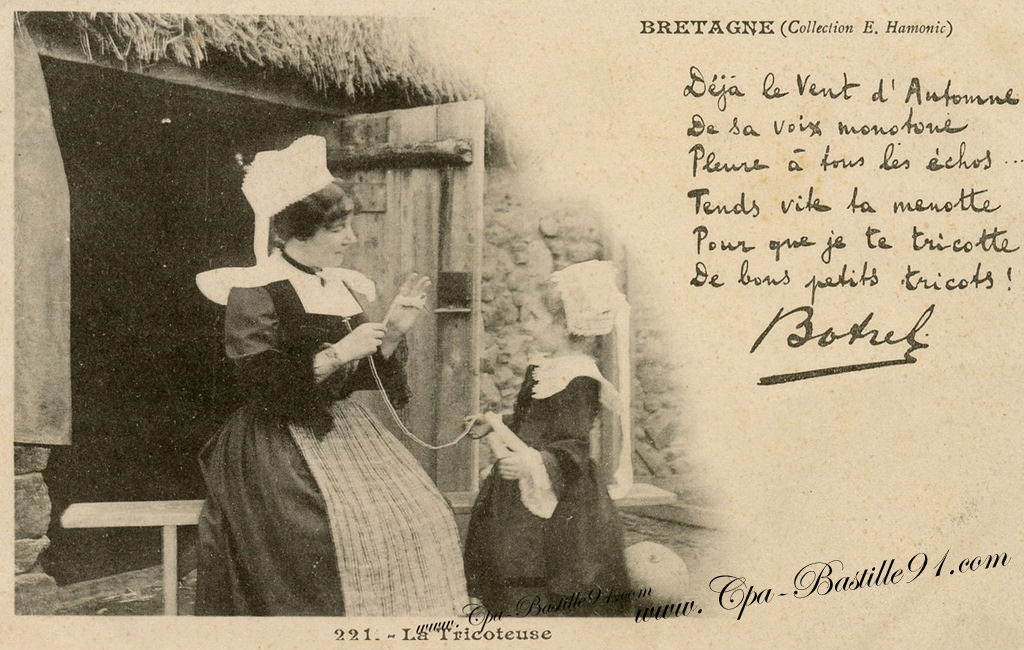 BRETAGNE (Collection E. Hamonic)
Déjà le Vent d'Automne
De sa voix monotone
Pleure à tous les échos ...
Tends vite ta menotte
Pour que je te tricotte
De bons petits tricots !
Botrel
www.Cpa-Bastille91.com
www.Cpa-Bastille91.com
221. - La Tricoteuse